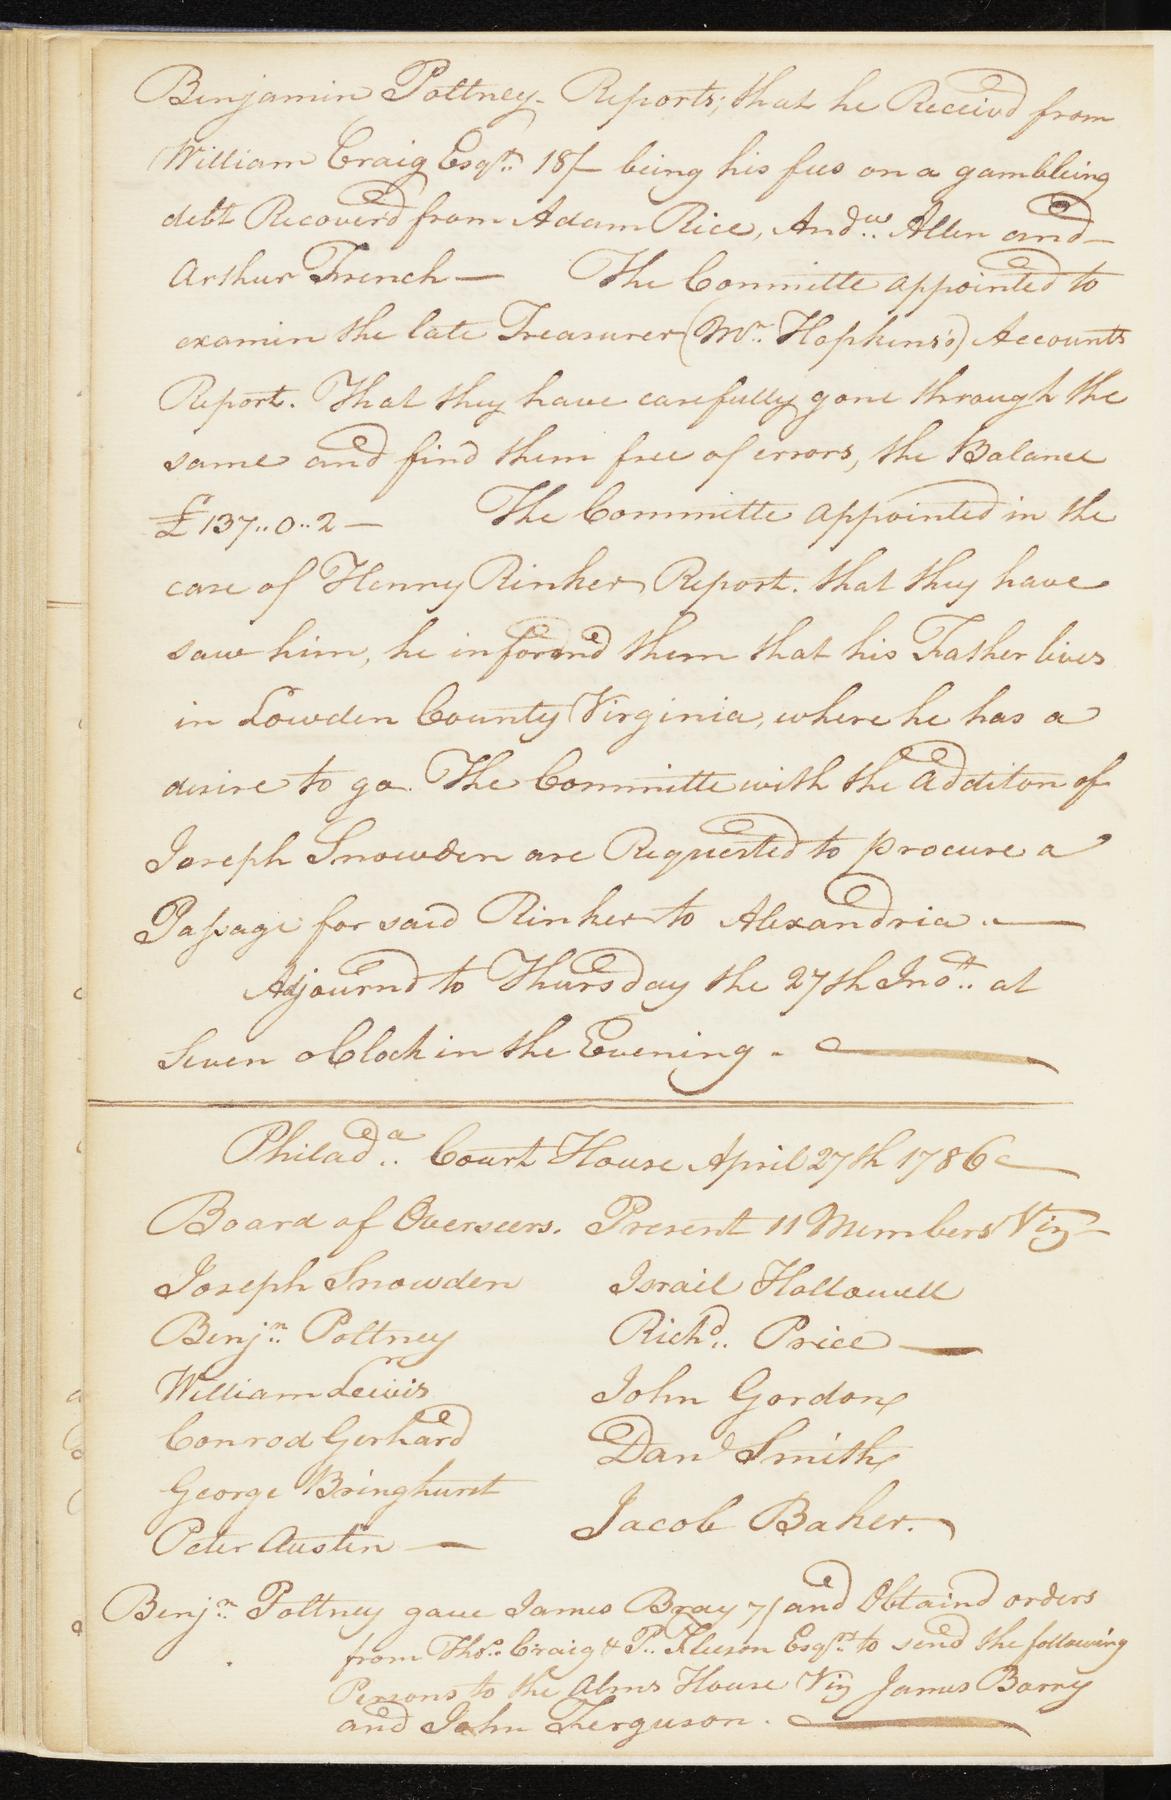 Benjamin Poltney Reports; that he Receivd from
William Craig Esqr. 18/– being his fees on a gambleing
debt Recoverd from Adam Rice, Andw. Allen and–
Arthur French — The Committe appointed to
examin the late Treasurer (Mr. Hopkins's) Accounts
Report. That they have carefully gone through the
same and find them free of errors, the Balance
£137..0..2 — The Committe appointed in the
case of Henry Rinker Report. that they have
saw him, he informd them that his Father lives
in Lowden County Virginia, where he has a
desire to go. The Committe with the additon of
Joseph Snowden are Requested to procure a
Passage for said Rinker to Alexandria. —
Adjournd to Thursday the 27th Inst. at
Seven oClock in the Evening. —
Philada. Court House April 27th 1786
Board of Overseers. Present 11 Members Viz–
Joseph Snowden Israil Hallowell
Benjn. Poltney Richd. Price —
William Lewis John Gordon
Conrod Gerhard Danl Smith
George Bringhurst Jacob Baker.
Peter Austin —
Benjn. Poltney gave James Bray 7/ and Obtaind orders
from Thos. Craig & P. Esqrs. to send the following
Persons to the Alms House Viz James Barry
and John Ferguson. —